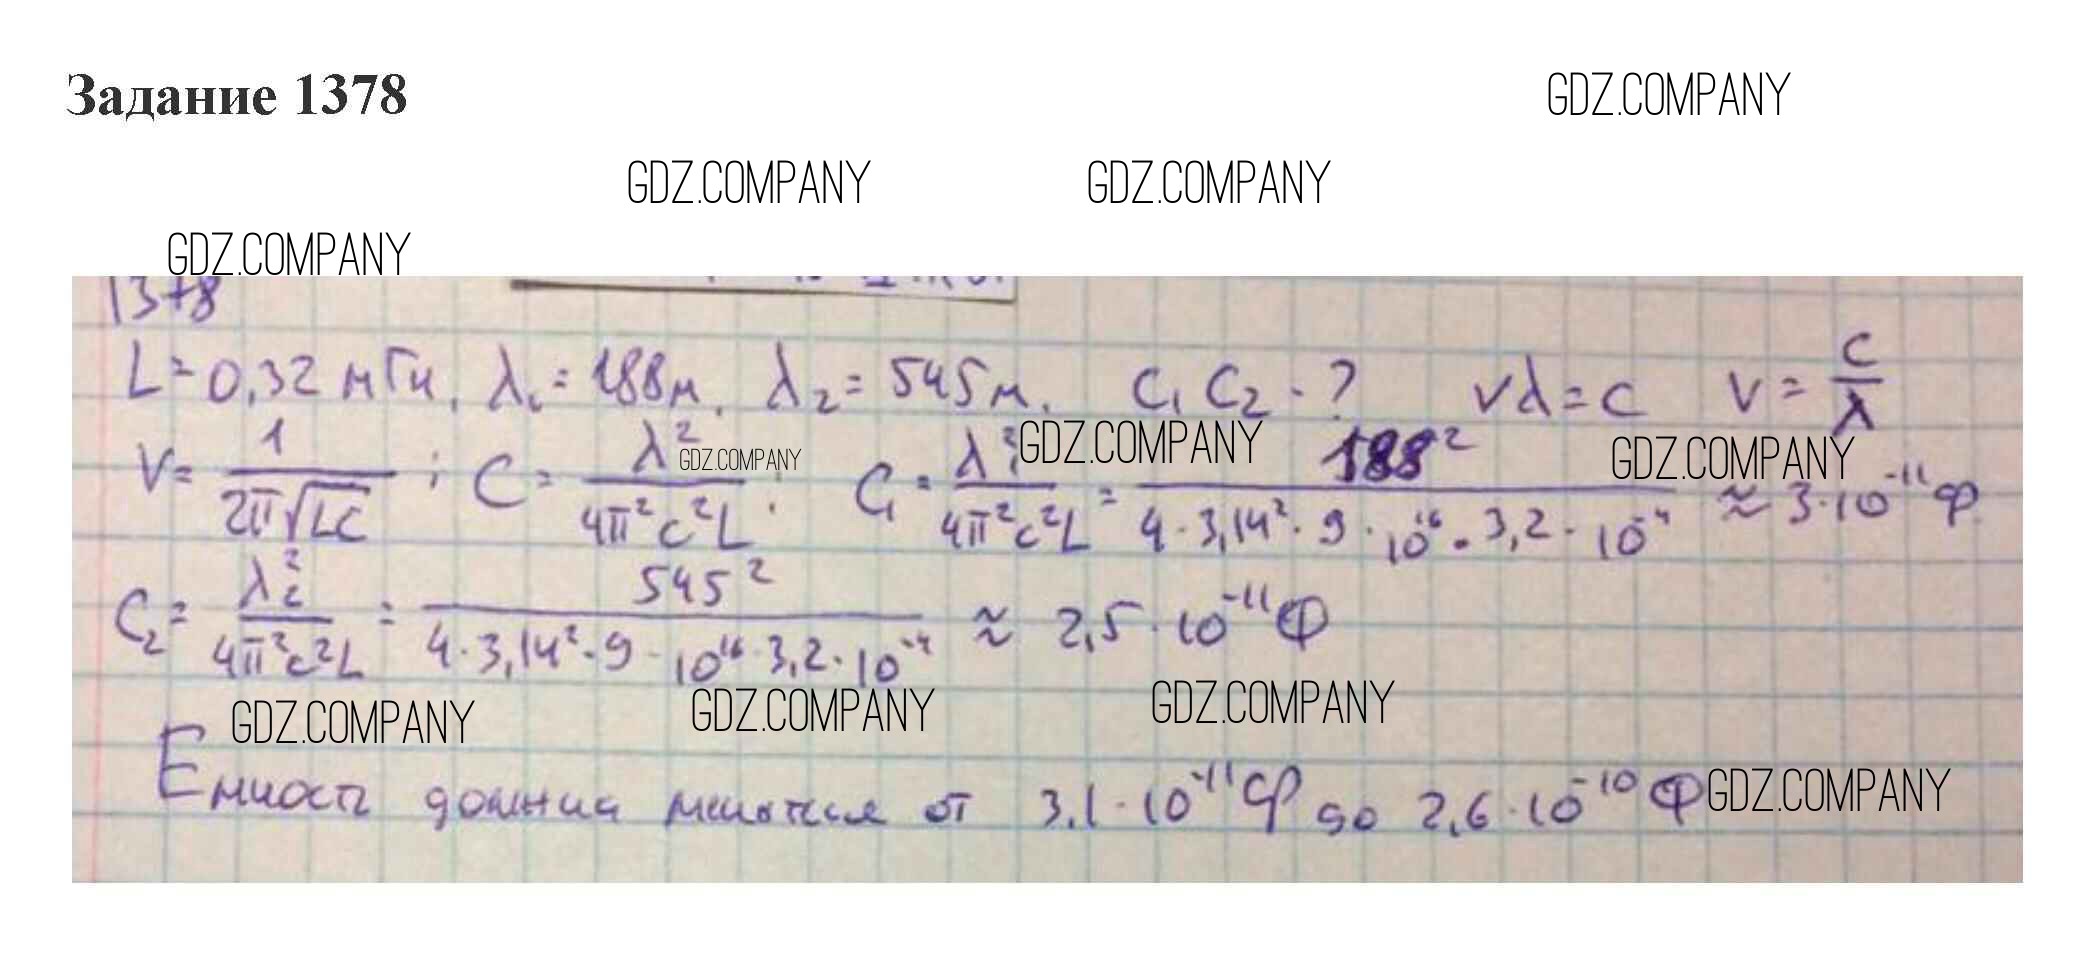 Задание 1378
GDZ.COMPANY
GDZ.COMPANY GDZ.COMPANY
GDZ.COMPANY
1378
L = 0,32 мГн, λ₁ = 188м, λ₂ = 545м. C₁ C₂ - ? νλ = c ν = c/λ
ν = 1/(2π√(LC)) ; C = λ²/(4π²c²L) ; C₁ = λ₁²/(4π²c²L) = 188²/(4·3,14²·9·10¹⁶·3,2·10⁻⁴) ≈ 3·10⁻¹¹ Ф
GDZ.COMPANY GDZ.COMPANY GDZ.COMPANY
C₂ = λ₂²/(4π²c²L) = 545²/(4·3,14²·9·10¹⁶·3,2·10⁻⁴) ≈ 2,5·10⁻¹¹ Ф
GDZ.COMPANY GDZ.COMPANY GDZ.COMPANY
Емкость должна меняться от 3,1·10⁻¹¹ Ф до 2,6·10⁻¹⁰ Ф
GDZ.COMPANY